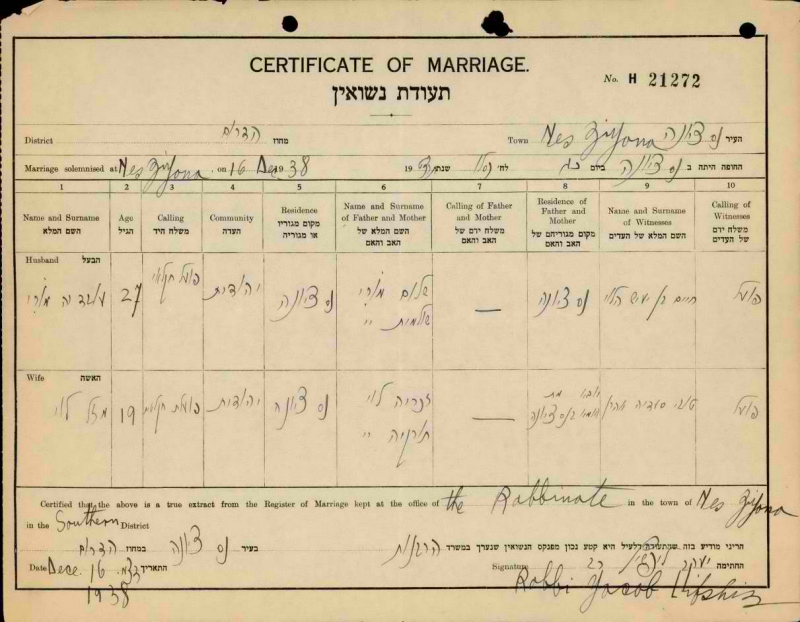 CERTIFICATE OF MARRIAGE.
No. H 21272
תעודת נשואין
District הדרום מחוז Town Nes Ziyona נס ציונה העיר
Marriage solemnised at Nes Ziyona on 16 Dec. 1938 19 שנת לח׳ כסלו ביום החופה היתה ב נס ציונה
1 2 3 4 5 6 7 8 9 10
Name and Surname השם המלא
Age הגיל
Calling משלח היד
Community העדה
Residence מקום מגוריו או מגוריה
Name and Surname of Father and Mother השם המלא של האב והאם
Calling of Father and Mother משלח ידם של האב והאם
Residence of Father and Mother מקום מגוריהם של האב והאם
Name and Surname of Witnesses השם המלא של העדים
Calling of Witnesses משלח ידם של העדים
Husband הבעל
עובדיה מארי 27 פועל חקלאי יהודית נס ציונה שלום מארי — נס ציונה חיים בן יעיש הלוי פועל
שלומית
Wife האשה
מזל לוי 19 פועלת חקלאית יהודית נס ציונה זכריה לוי — האב מת
האם בנס ציונה סעדיה פועל
Certified that the above is a true extract from the Register of Marriage kept at the office of the Rabbinate in the town of Nes Ziyona
in the Southern District
הריני מודיע בזה שהתעודה דלעיל היא קטע נכון מפנקס הנשואין שנערך במשרד הרבנות
בעיר נס ציונה במחוז הדרום
Date Dece. 16 1938 התאריך החתימה יעקב ליפשיץ רב
Signature Rabbi Jacob Lifshiz